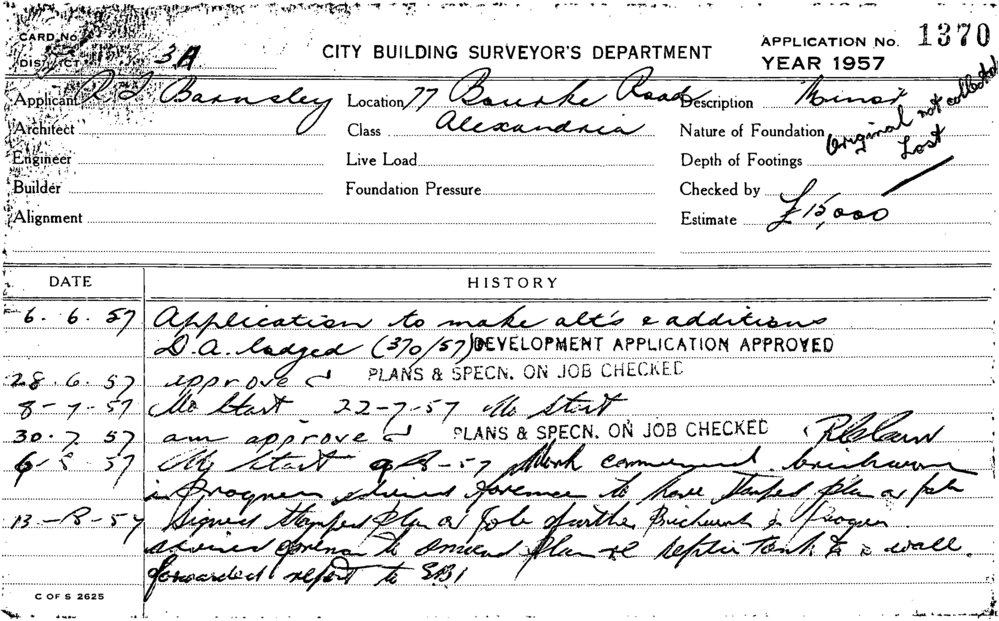 CARD No.
DISTRICT 3A
CITY BUILDING SURVEYOR'S DEPARTMENT
APPLICATION No. 1370
YEAR 1957
Applicant Barnsley Location 77 Bourke Road Description Minor
Original not collected
Lost
Architect Class Alexandria Nature of Foundation
Engineer Live Load Depth of Footings
Builder Foundation Pressure Checked by
Alignment Estimate £15,000
DATE HISTORY
6. 6. 57 Application to make alt's & additions
D.A. lodged (370/57) DEVELOPMENT APPLICATION APPROVED
28. 6. 57 approve PLANS & SPECN. ON JOB CHECKED
8-7-57 No Start 22-7-57 No Start
30. 7. 57 am approve PLANS & SPECN. ON JOB CHECKED
6-8-57 No Start 9-8-57 Work commenced brickwork
in progress advised foreman to have stamped plan on job
13-8-57 Signed Stamped Plan on Job further Brickwork in progress
advised foreman to amend plan re septic tank & wall.
forwarded report to
C OF S 2625